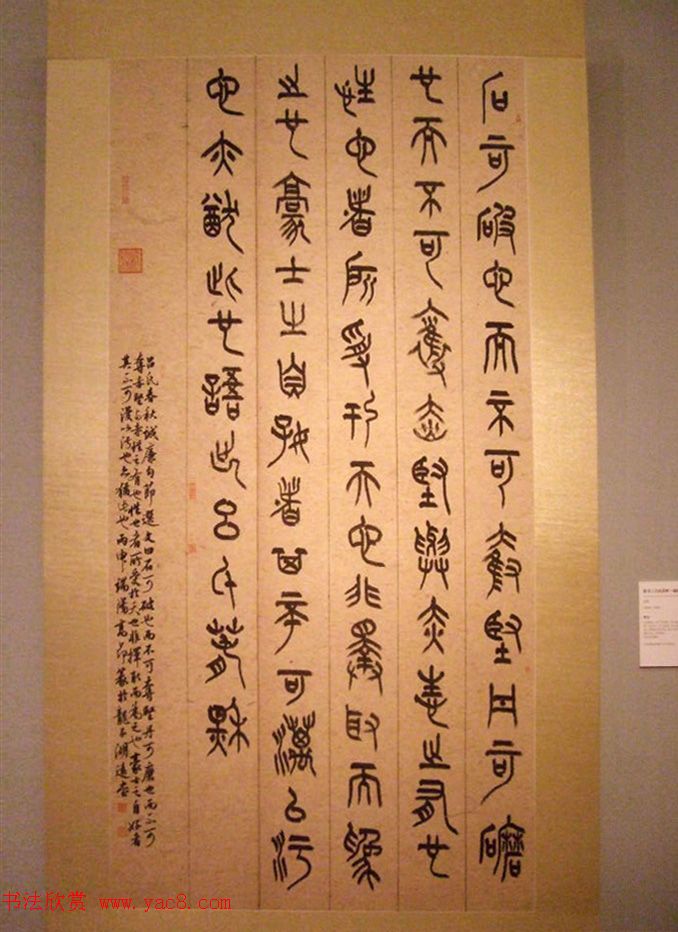 石可破也而不可奪堅丹可磨
也而不可奪赤堅與赤性之有也
性也者所受於天也非擇取而為
之也豪士之自好者其不可漫以污
也亦猶此也語出呂氏春秋
呂氏春秋誠廉句節選文曰石可破也而不可奪堅丹可磨也而不可
奪赤堅與赤性之有也性也者所受於天也非擇取而為之也豪士之自好者
其不可漫以污也亦猶此也丙申端陽高篆於龍湖
书法欣赏 www.yac8.com